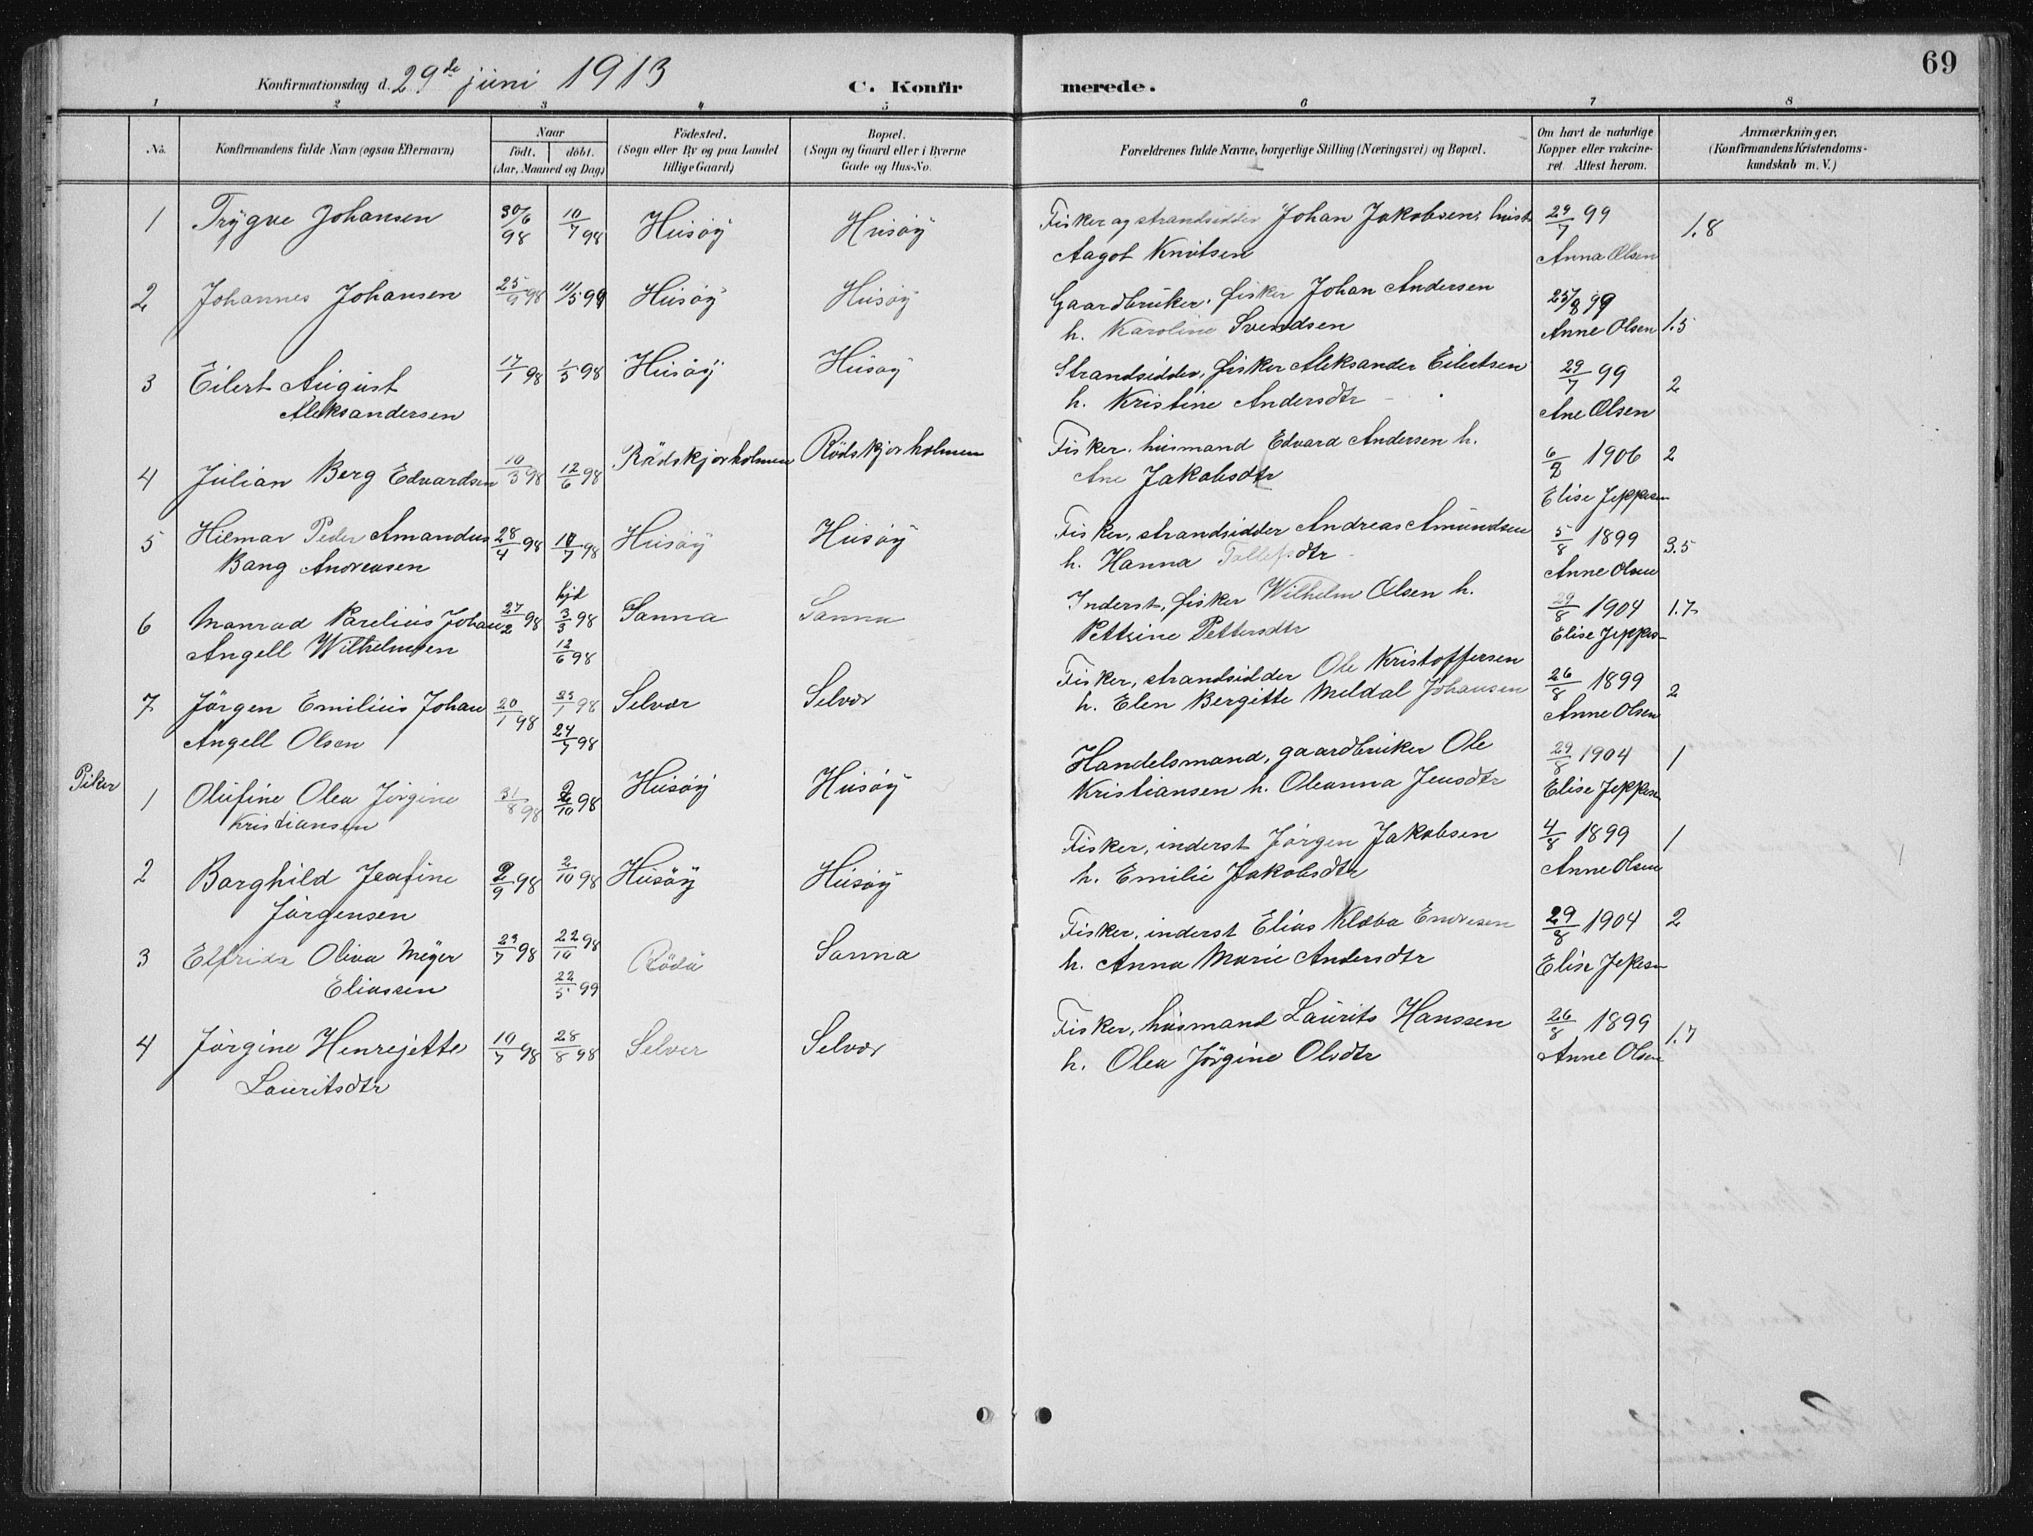 69
Konfirmationsdag d. 29de juni 1913 C. Konfir merede.
1 2 3 4 5 6 7 8
No. Konfirmandens fulde Navn (ogsaa Efternavn) Naar födt. döbt. (Aar, Maaned og Dag) Födested. (Sogn eller By og paa Landet tillige Gaard) Bopæl. (Sogn og Gaard eller i Byerne Gade og Hus-No. Forældrenes fulde Navne, borgerlige Stilling (Næringsvei) og Bopæl. Om havt de naturlige Kopper eller vakcineret. Attest herom. Anmærkninger, (Konfirmandens Kristendomskundskab m. V.)
1 Trygve Johansen 30/6 98 10/7 98 Husöy Husöy Fisker og strandsidder Johan Jakobsen, hust 29/7 99 1.8
Aagot Knutsen Anna Olsen
2 Johannes Johansen 25/9 98 11/5 99 Husöy Husöy Gaardbruker, fisker Johan Andersen 25/8 99
h. Karoline Svendsen Anne Olsen 1.5
3 Eilert August 17/1 98 1/5 98 Husöy Husöy Strandsidder, fisker Aleksander Eilertsen 29/7 99 2
Aleksandersen h. Kristine Andersdtr Ane Olsen
4 Julian Berg Edvardsen 10/3 98 12/6 98 Rödskjærholmen Rödskjærholmen Fisker, husmand Edvard Andersen h. 6/8 1906 2
Ane Jakobsdtr Elise Jeppesen
5 Hilmar Peder Amandus 28/4 98 10/7 98 Husöy Husöy Fisker, strandsidder Andreas Amundsen 5/8 1899 3.5
Bang Andreasen h. Hanna Tollefsdtr Anne Olsen
6 Manrad Parelius Johan 27/2 98 hjd 3/3 98 Sanna Sanna Inderst, fisker Wilhelm Olsen h. 29/8 1904 1.7
Angell Wilhelmsen 12/6 98 Pettrine Pettersdtr Elise Jeppesen
7 Jörgen Emilius Johan 20/1 98 23/1 98 Selvær Selvær Fisker, strandsidder Ole Kristoffersen 26/8 1899 2
Angell Olsen 24/7 98 h. Elen Bergitte Meldal Johansen Anne Olsen
Piker 1 Olufine Olea Jörgine 31/8 98 2/10 98 Husöy Husöy Handelsmand, gaardbruker Ole 29/8 1904 1
Kristiansen Kristiansen h. Oleanna Jensdtr Elise Jeppesen
2 Borghild Josefine 2/9 98 2/10 98 Husöy Husöy Fisker, inderst Jörgen Jakobsen 4/8 1899 1
Jörgensen h. Emilie Jakobsdtr Anne Olsen
3 Elfrida Oliva Meyer 23/7 98 22/10 98 Rödö Sanna Fisker, inderst Elias Klæbo Endresen 29/8 1904 2
Eliassen 22/5 99 h. Anna Marie Andersdtr Elise Jepesen
4 Jörgine Henrejette 10/7 98 28/8 98 Selvær Selvær Fisker, husmand Laurits Hanssen 26/8 1899 1.7
Lauritsdtr h. Olea Jörgine Olsdtr Anne Olsen